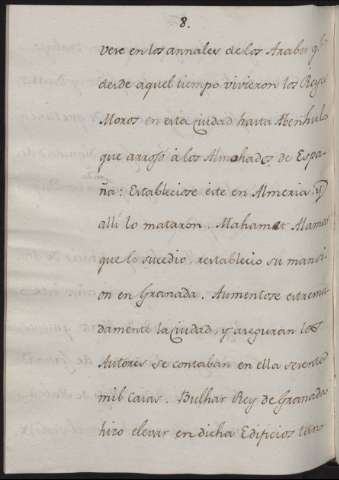 8.
vese en los annales de los Arabes q.^e
desde aquel tiempo vivieron los Reyes
Moros en esta Ciudad hasta Abenhulo
que arrojó á los Almohades de Espa-
ña: Establecióse éste en Almeria y
alli lo mataron. Mahamet Alamar
que lo sucedio, restablecio su mansi-
on en Granada. Aumentose estrema
damente la Ciudad, y aseguran los
Autores se contaban en ella setenta
mil casas. Bulhar Rey de Granada
hizo elevar en dicha Edificios tan